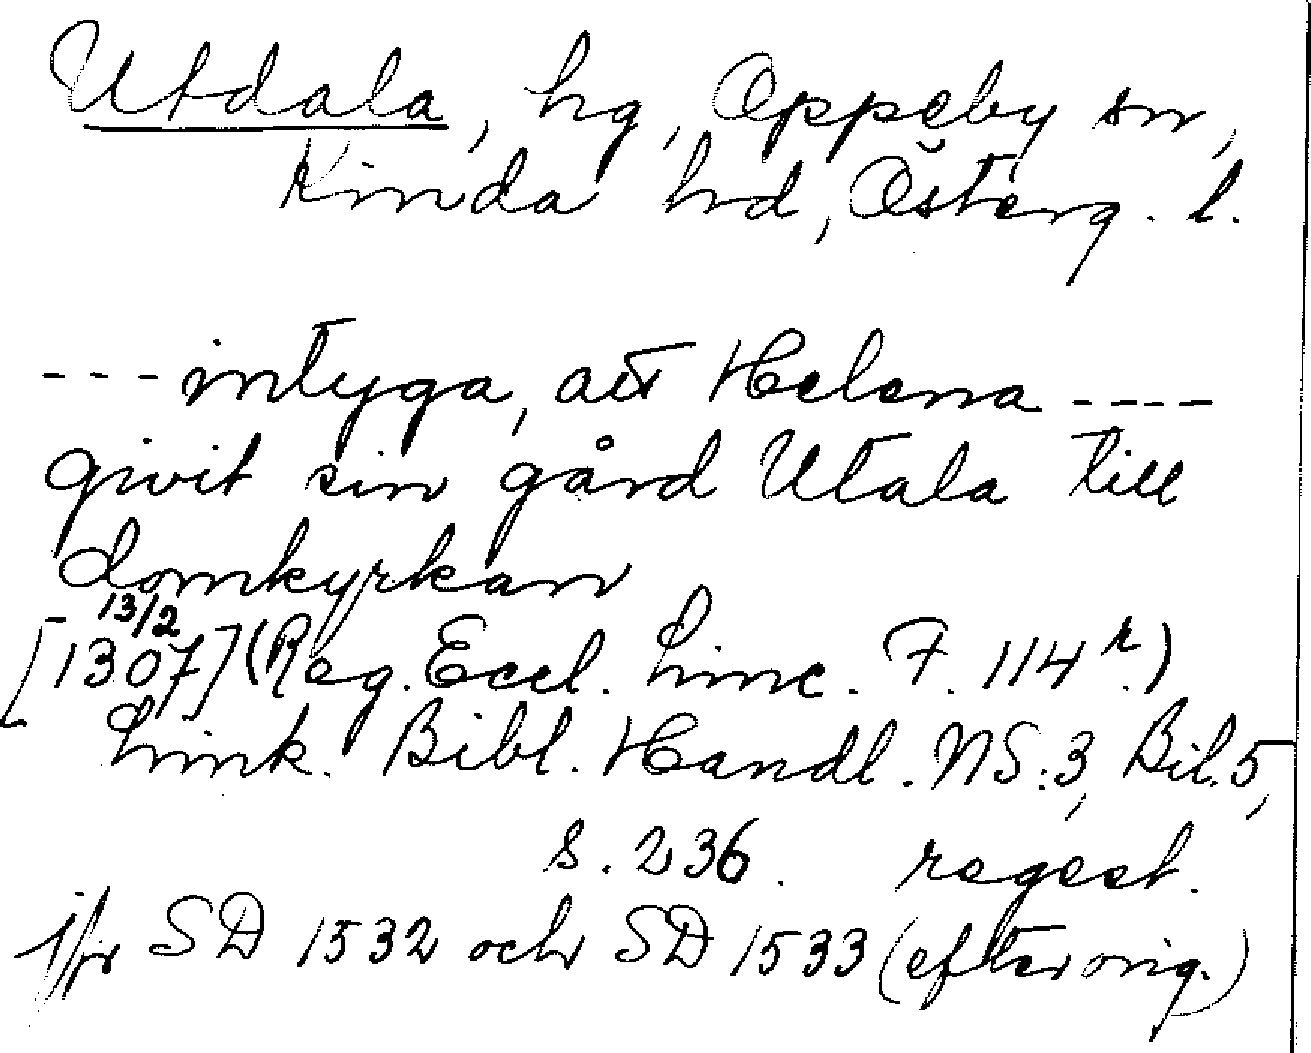 Utdala, hg, Oppeby sn,
Kinda hrd, Österg. l.
--- intyga, att Helena ----
givit sin gård Utala till
domkyrkan
13/2
[1307] (Reg. Eccl. Linc. F. 114 r.)
Link. Bibl. Handl. NS:3, Bil. 5,
s. 236. regest.
jfr SD 1532 och SD 1533 (efter orig.)